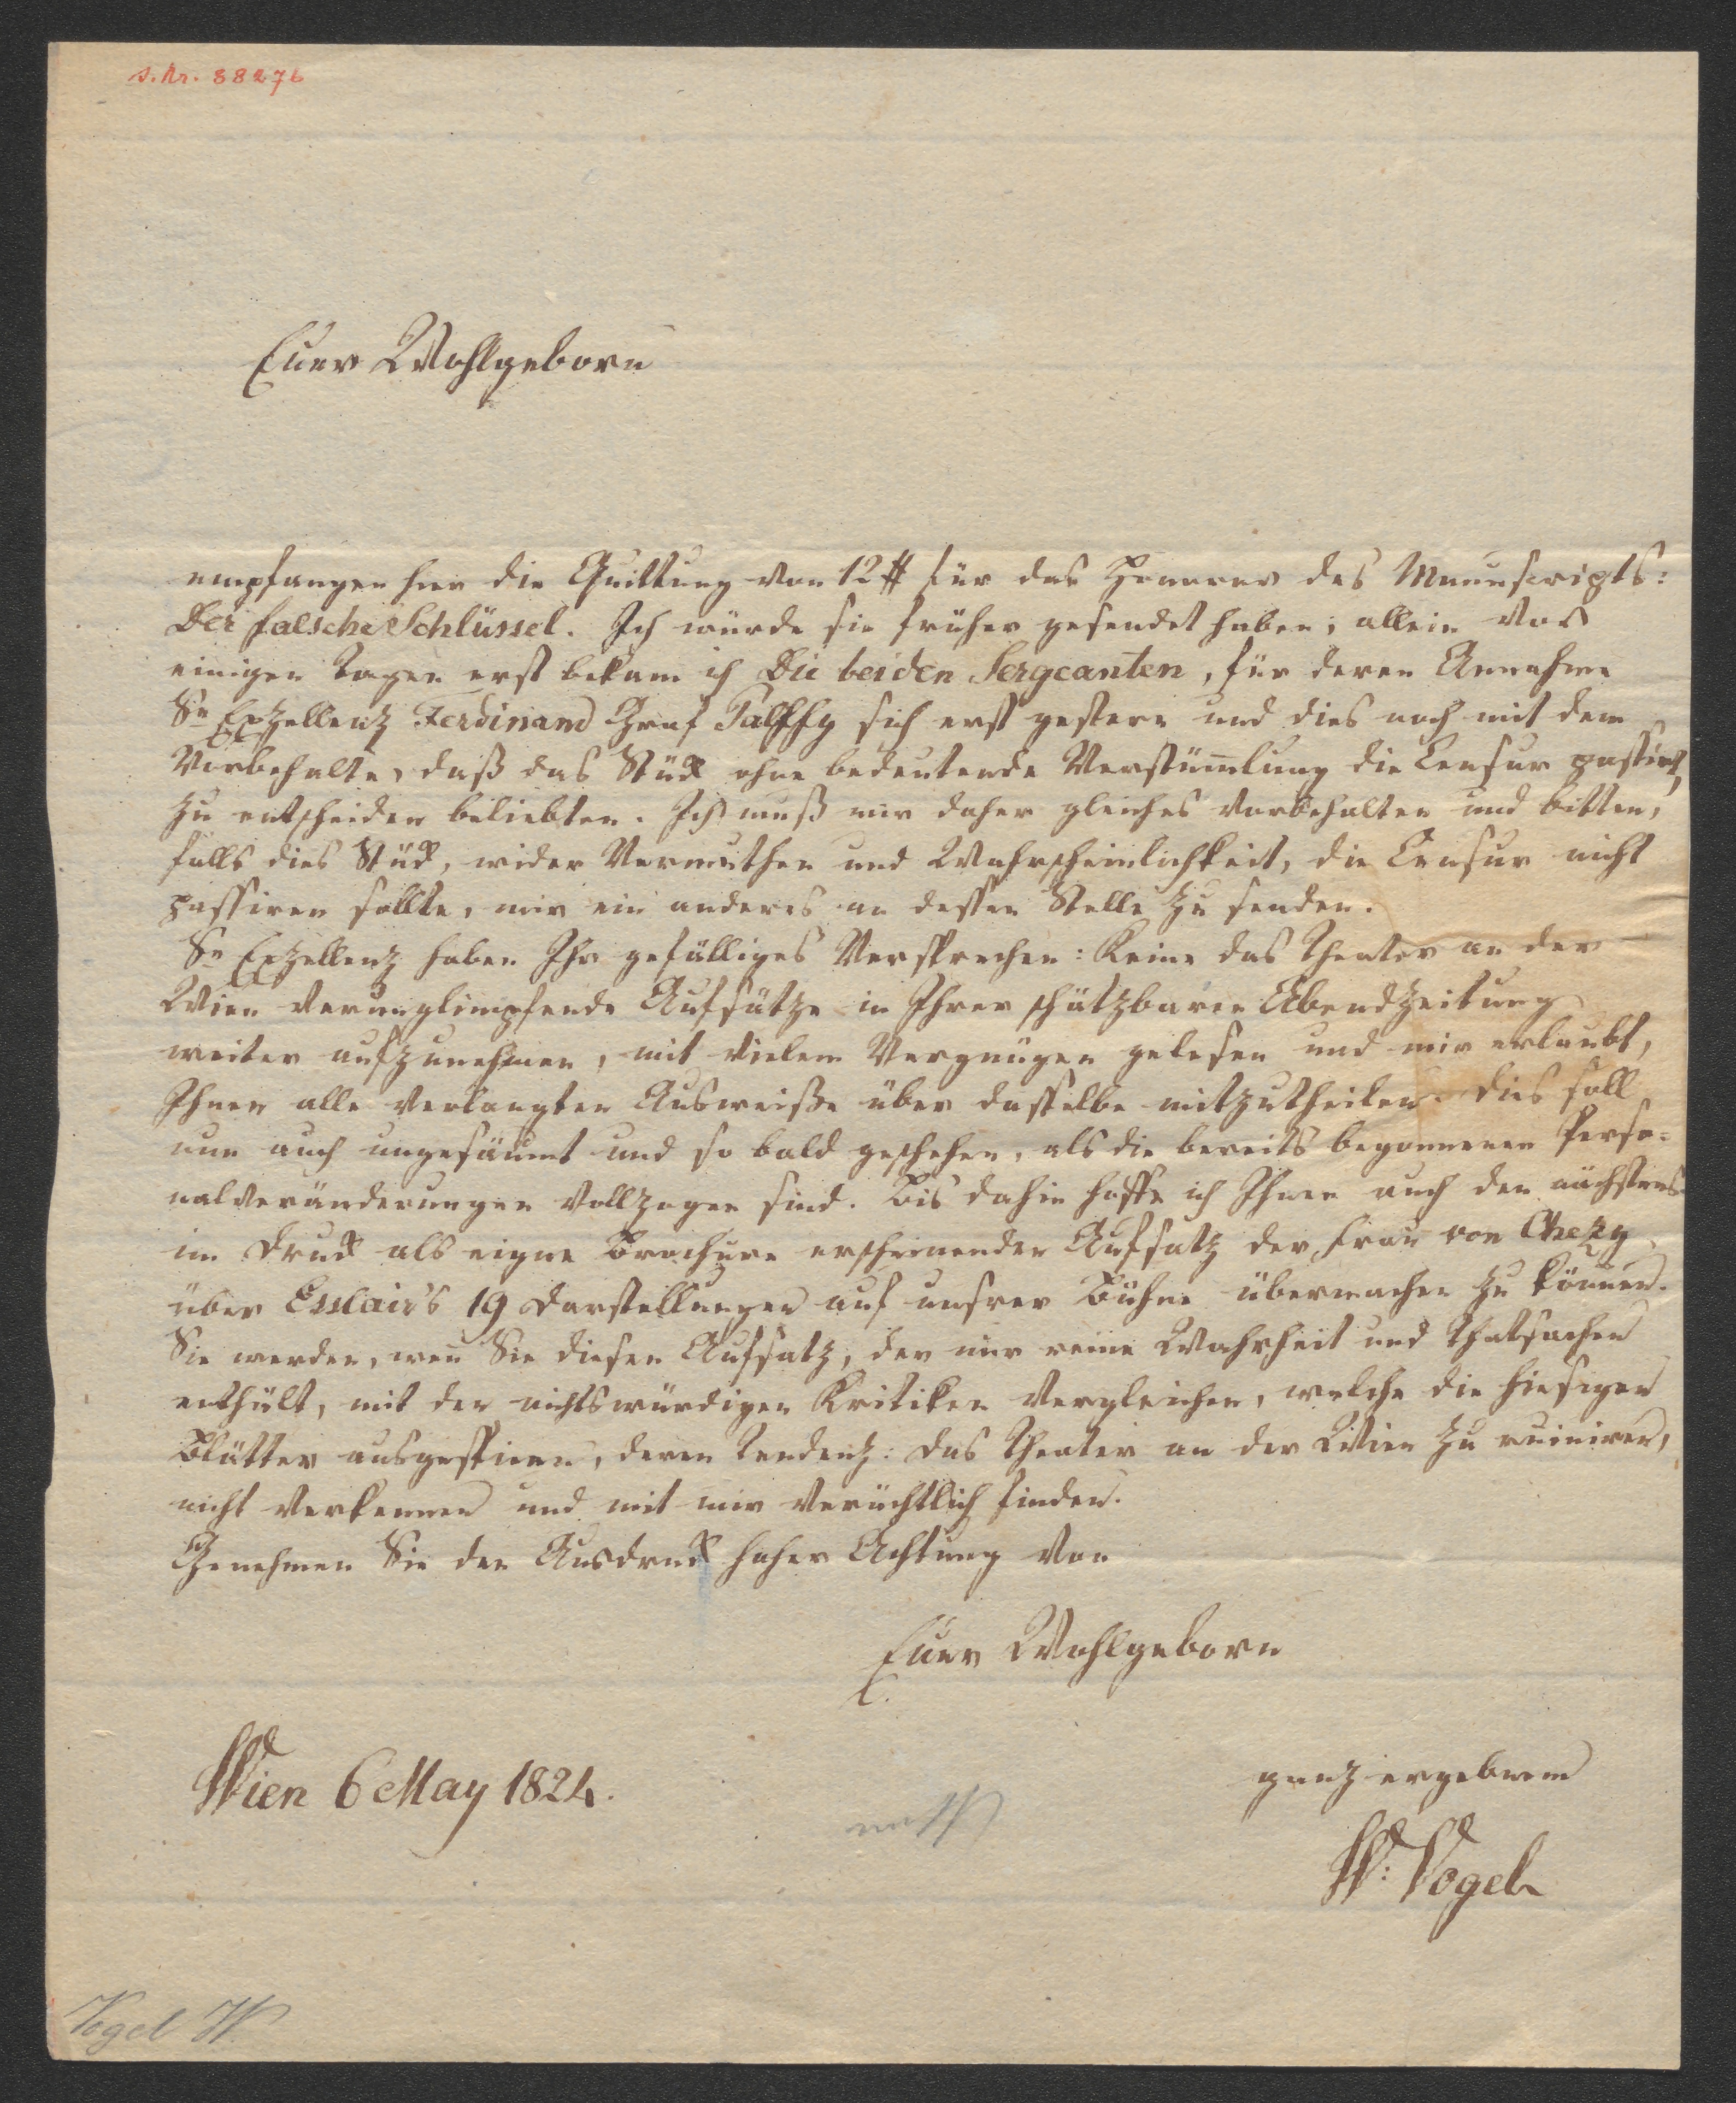 s. Nr. 88276
Euer Wohlgeborn
empfangen hier die Quittung von 12 # für das Honorar des Manuscripts:
Der falsche Schlüssel. Ich würde sie früher gesendet haben; allein vor
einigen Tagen erst bekam ich Die beiden Sergeanten, für deren Annahme
Se Exzellenz Ferdinand Graf Palffy sich erst gestern und dies noch mit dem
Vorbehalte, daß das Stück ohne bedeutende Verstümlung die Censur passirt,
zu entscheiden beliebten. Ich muß mir daher gleiches vorbehalten und bitten,
falls dies Stück, wider Vermuthen und Wahrscheinlichkeit, die Censur nicht
passiren sollte, mir ein anderes an dessen Stelle zu senden.
Se Exzellenz haben Ihr gefälliges Versprechen: Keine das Theater an der
Wien verunglimpfende Aufsätze in Ihrer schätzbaren Abendzeitung
weiter aufzunehmen, mit vielem Vergnügen gelesen und mir erlaubt,
Ihnen alle verlangten Ausweiße über dasselbe mitzutheilen. Dies soll
nun auch ungesäumt und so bald geschehen, als die bereits begonnenen Perso=
nalveränderungen vollzogen sind. Bis dahin hoffe ich Ihnen auch den nächstens
im Druck als eigne Brochure erscheinenden Aufsatz der Frau von Chezy
über Esslair's 19 Darstellungen auf unsrer Bühne übermachen zu können.
Sie werden, wen Sie diesen Aufsatz, der nur reine Wahrheit und Thatsachen
enthält, mit den nichtswürdigen Kritiken vergleichen, welche die hiesigen
Blätter ausgespieen, deren Tendenz: das Theater an der Wien zu ruiniren,
nicht verkennen und mit mir verächtlich finden.
Genehmen Sie den Ausdruck hoher Achtung von
Euer Wohlgeborn
ganz ergebnem
Wien 6 May 1824.
W. Vogel
Vogel W.